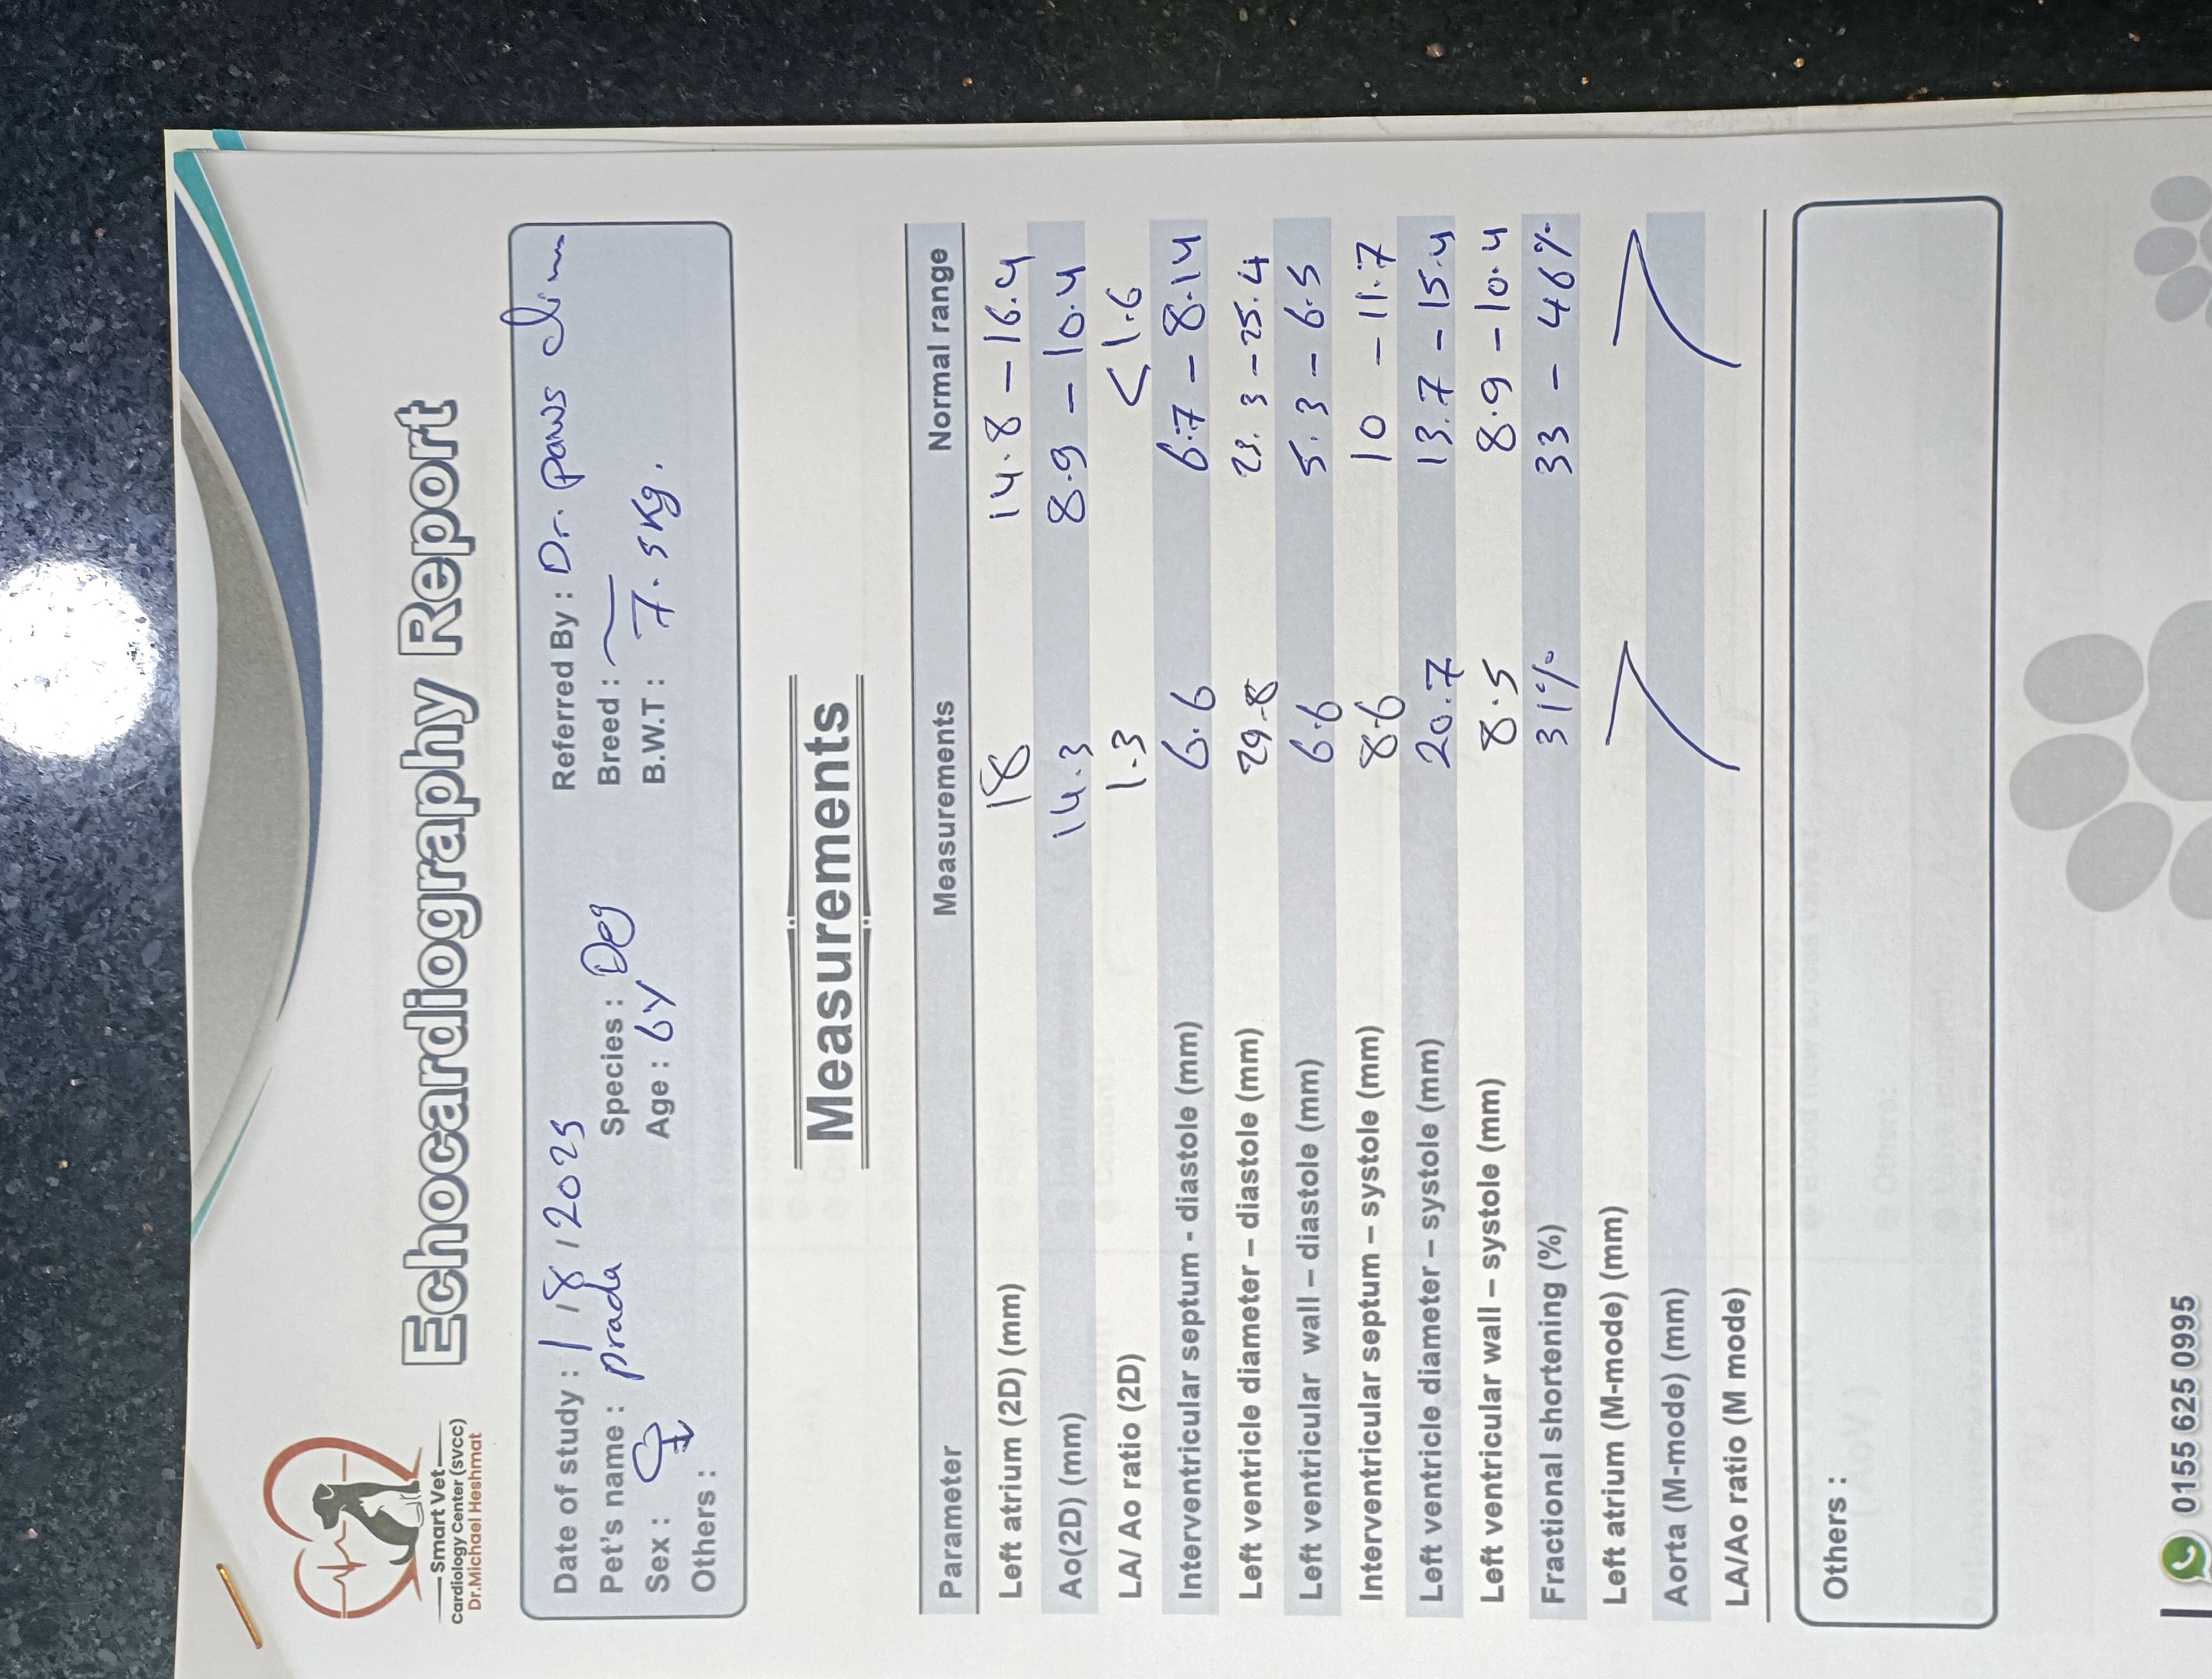 Smart Vet
Cardiology Center (svcc)
Dr.Michael Heshmat
Echocardiography Report
Date of study : 1 / 8 / 2025 Referred By : Dr. Paws
Pet's name : prada Species : Dog Breed :
Sex : ♀ Age : 6y B.W.T : 7.5 Kg.
Others :
Measurements
Parameter Measurements Normal range
Left atrium (2D) (mm) 18 14.8 – 16.4
Ao(2D) (mm) 14.3 8.9 – 10.4
LA/ Ao ratio (2D) 1.3 < 1.6
Interventricular septum - diastole (mm) 6.6 6.7 – 8.14
Left ventricle diameter – diastole (mm) 29.8 23.3 – 25.4
Left ventricular wall – diastole (mm) 6.6 5.3 – 6.5
Interventricular septum – systole (mm) 8.6 10 – 11.7
Left ventricle diameter – systole (mm) 20.7 13.7 – 15.4
Left ventricular wall – systole (mm) 8.5 8.9 – 10.4
Fractional shortening (%) 31% 33 – 46%
Left atrium (M-mode) (mm)
Aorta (M-mode) (mm)
LA/Ao ratio (M mode)
Others :
0155 625 0995